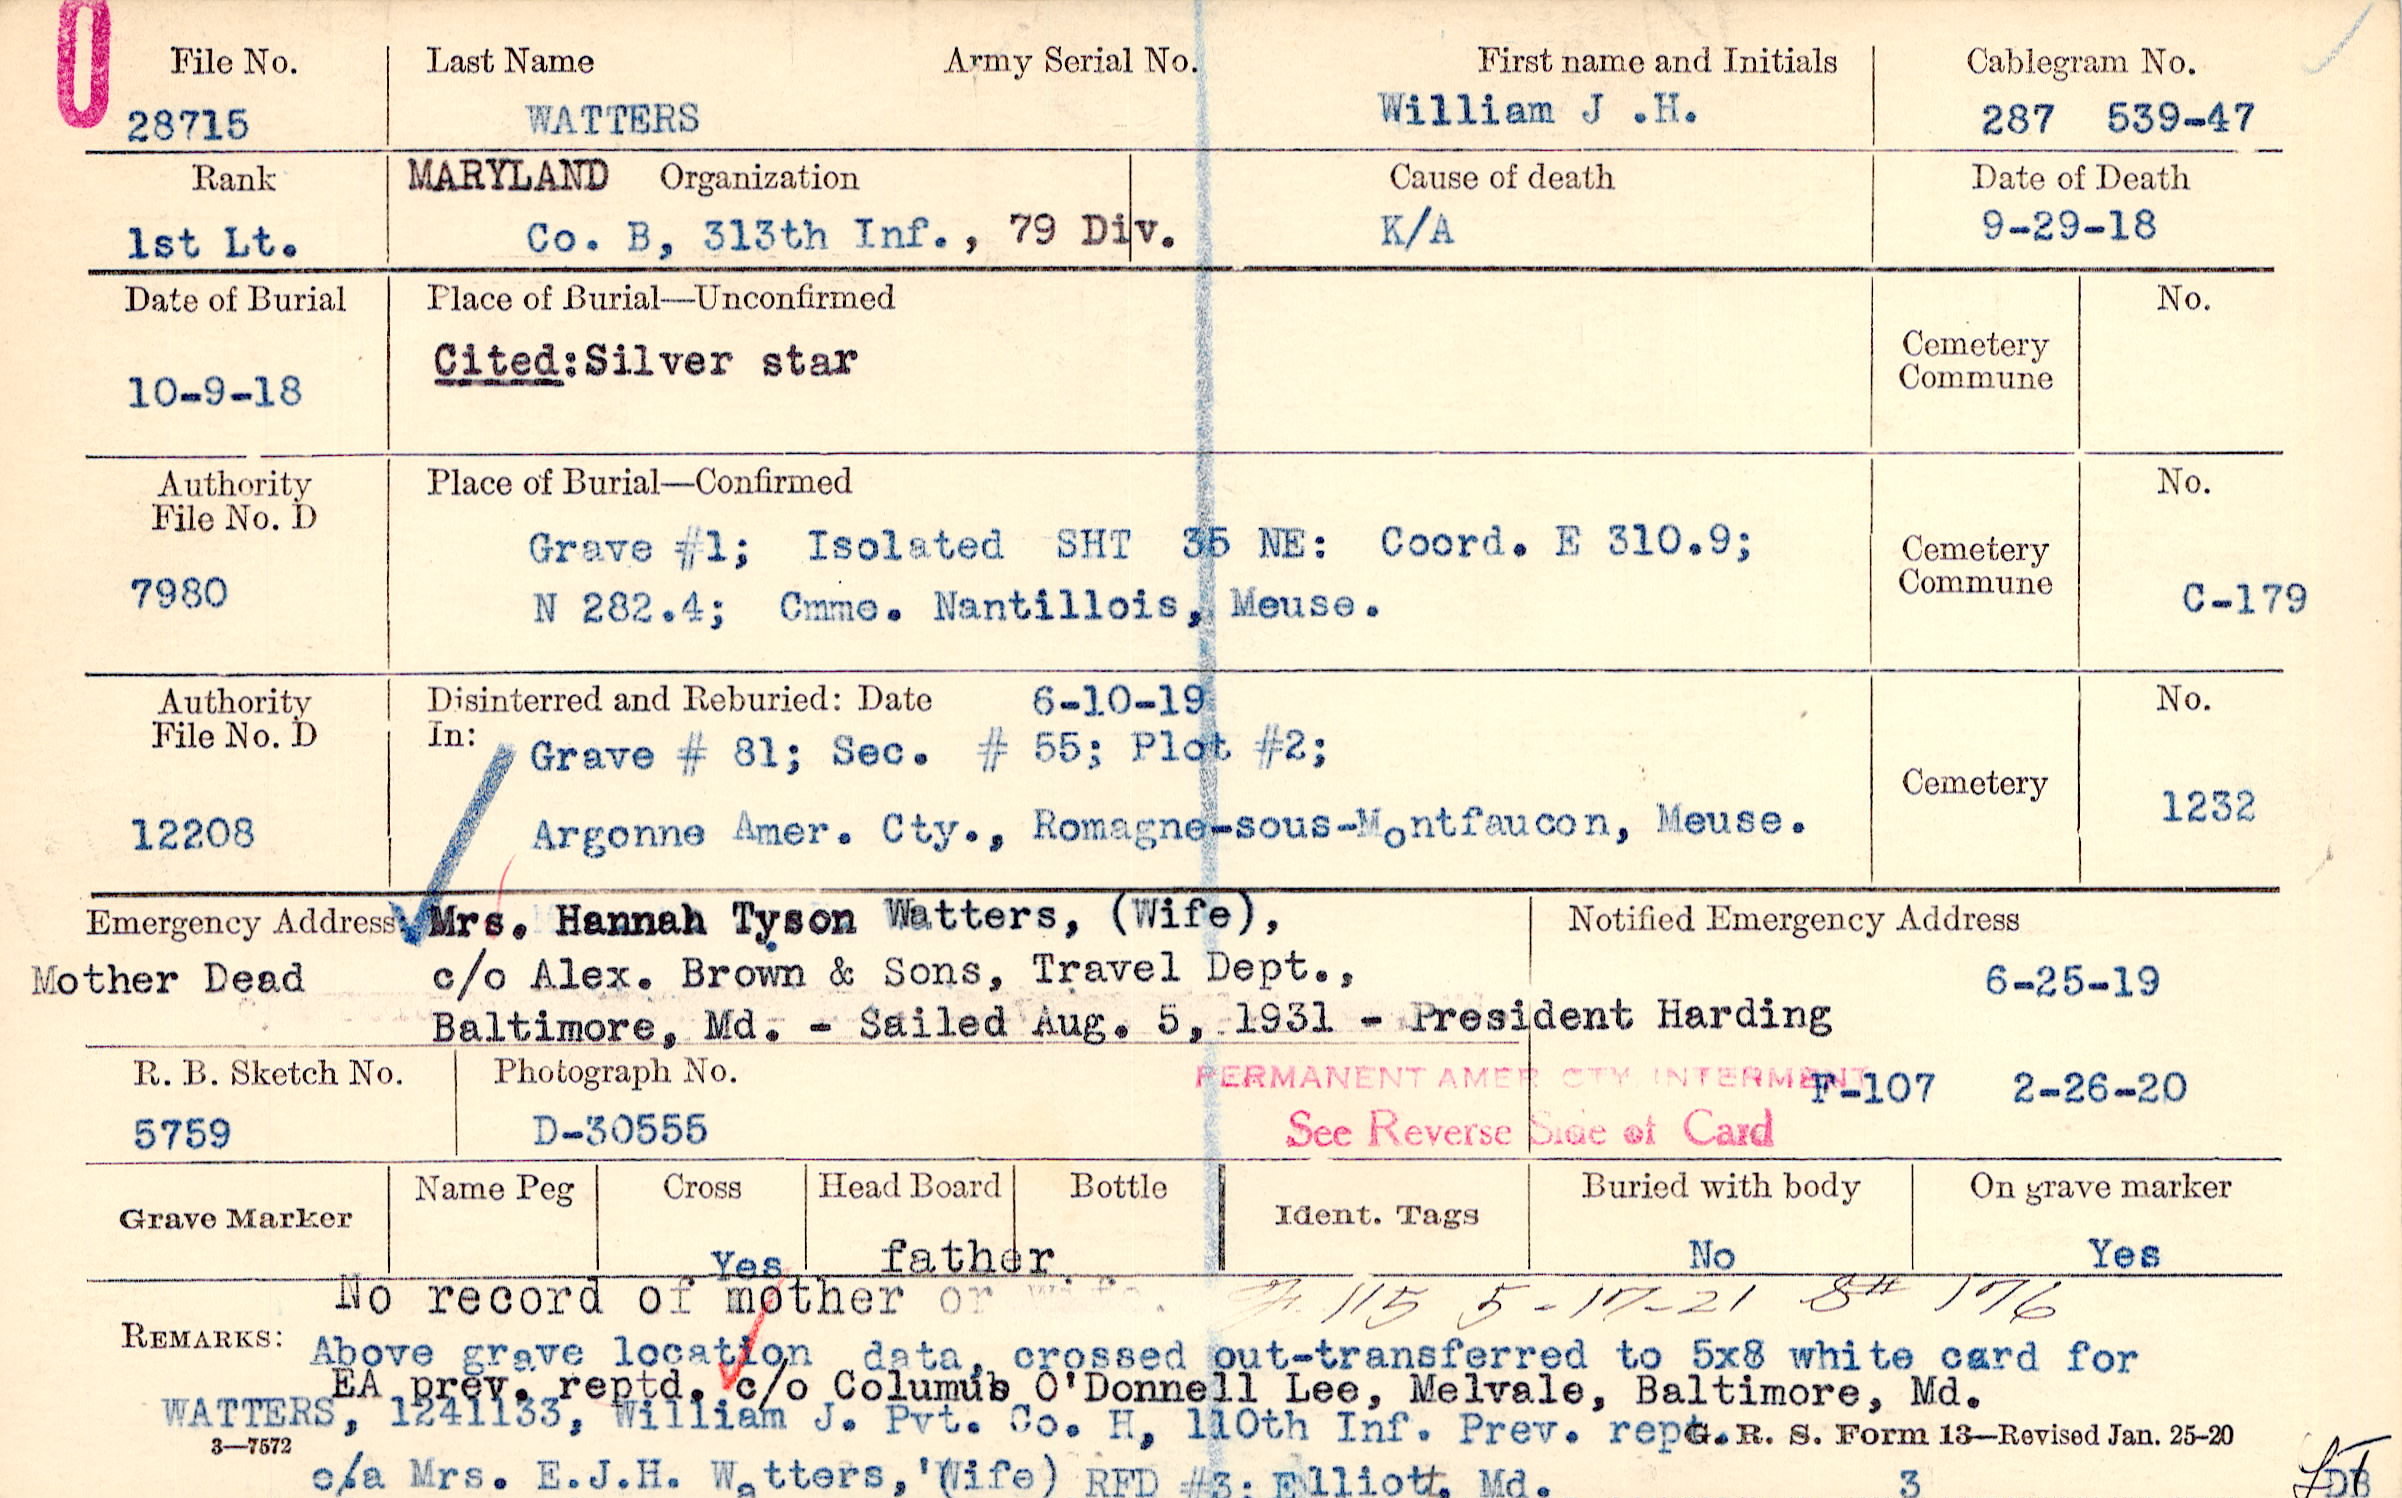 File No. Last Name Army Serial No. First name and Initials Cablegram No.
28715 WATTERS William J .H. 287 539-47
Rank MARYLAND Organization Cause of death Date of Death
1st Lt. Co. B, 313th Inf., 79 Div. K/A 9-29-18
Date of Burial Place of Burial—Unconfirmed No.
Cited:Silver star Cemetery
Commune
10-9-18
Authority Place of Burial—Confirmed No.
File No. D
Grave #1; Isolated SHT 35 NE: Coord. E 310.9; Cemetery
Commune
7980 N 282.4; Cmme. Nantillois, Meuse. C-179
Authority Disinterred and Reburied: Date 6-10-19 No.
File No. D In: Grave # 81; Sec. # 55; Plot #2;
Cemetery
12208 Argonne Amer. Cty., Romagne-sous-Montfaucon, Meuse. 1232
Emergency Address Mrs. Hannah Tyson Watters, (Wife), Notified Emergency Address
Mother Dead c/o Alex. Brown & Sons, Travel Dept., 6-25-19
Baltimore, Md. - Sailed Aug. 5, 1931 - President Harding
R. B. Sketch No. Photograph No. PERMANENT AMER CTY INTERMENT F-107 2-26-20
5759 D-30555 See Reverse Side of Card
Grave Marker Name Peg Cross Head Board Bottle Ident. Tags Buried with body On grave marker
Yes father No Yes
No record of mother or 115 5-17-21 176
REMARKS: Above grave location data, crossed out-transferred to 5x8 white card for
EA prev. reptd. c/o Columus O'Donnell Lee, Melvale, Baltimore, Md.
WATTERS, 1241133, William J. Pvt. Co. H, 110th Inf. Prev. rept.
3—7572 G. R. S. Form 13—Revised Jan. 25-20
e/a Mrs. E.J.H. Watters, (Wife) RFD #3: Elliott, Md. 3 DB